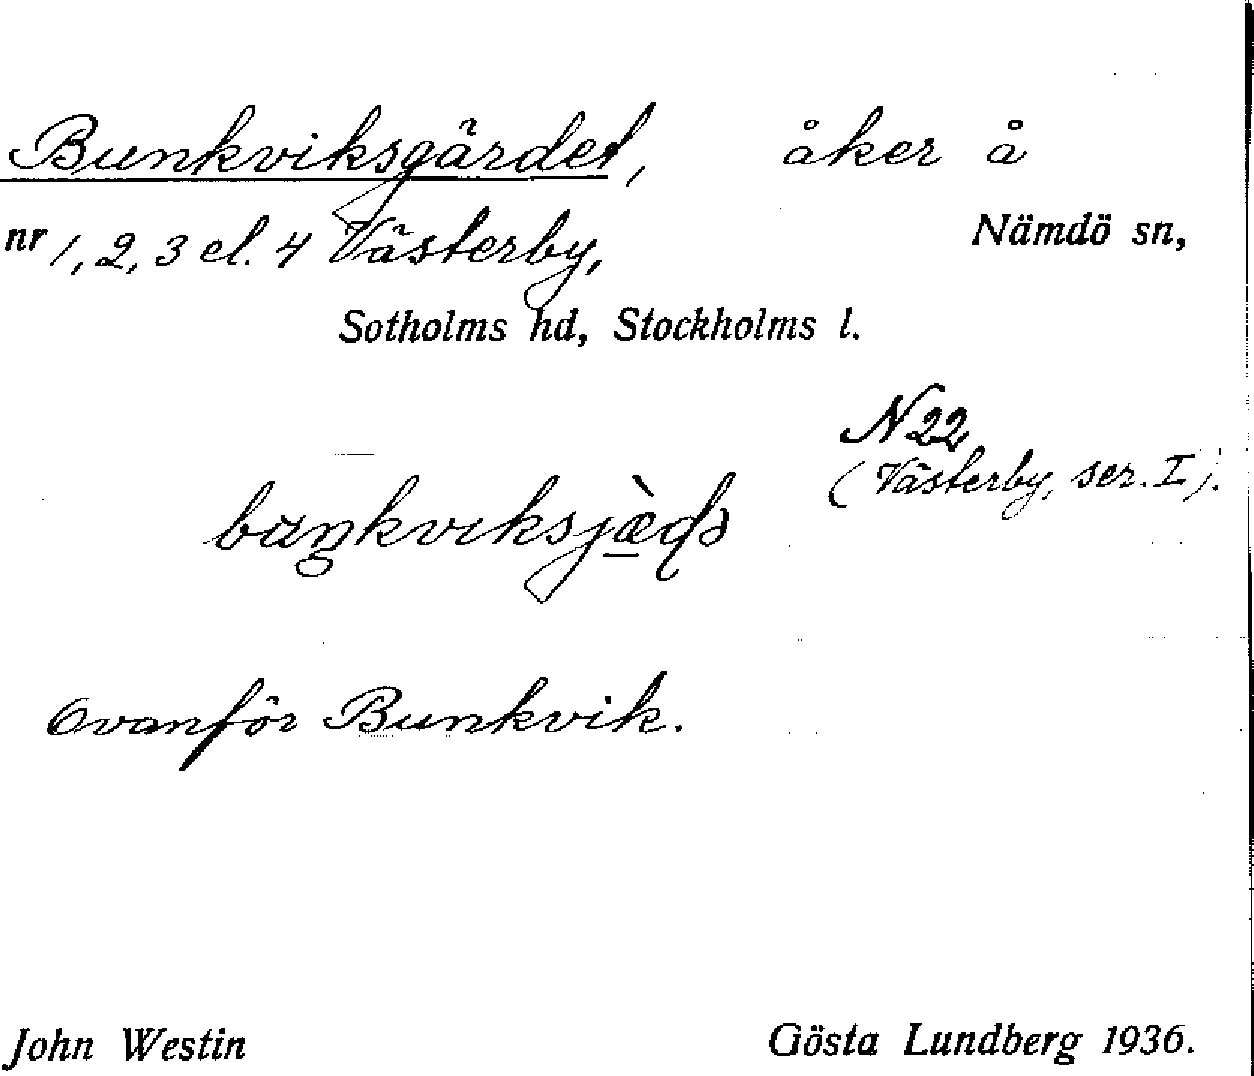 Bunkviksgärdet, åker å
nr 1, 2, 3 el. 4 Västerby, Nämdö sn,
Sotholms hd, Stockholms l.
N 22
(Västerby, ser. I).
Ovanför Bunkvik.
John Westin Gösta Lundberg 1936.